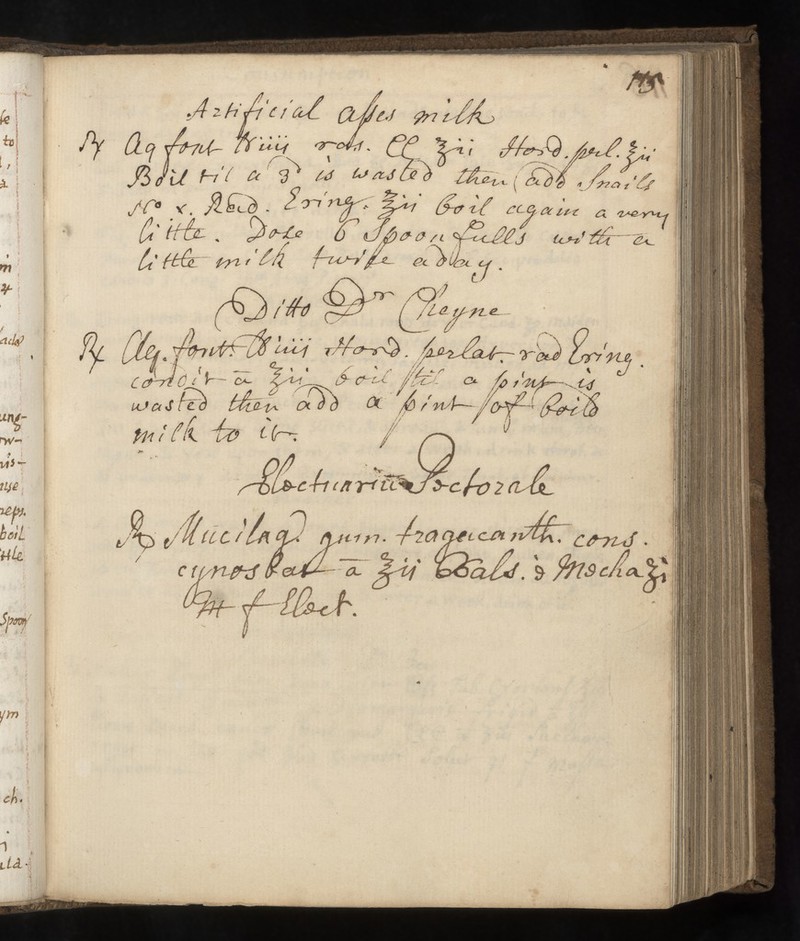 115
Artificial asses milk
℞ Aq font ℔iiii ras. CC ℥ii Hord. perl. ℥ii
Boil til a 3d is wasted then add Snails
No x. Rad. Ering. ℥ii boil again a very
little. Dose 6 Spoonfulls with a
little milk twice a day.
Ditto Dr Cheyne
℞ Aq. font. ℔iiii Hord. perlat. rad Ering.
condit ā ℥ii boil til a pint is
wasted then add a pint of boild
milk to it.
Electuariū Pectorale
℞ Mucilag. gum. tragacanth. cons.
cynosbat ā ℥ii Bals. è Mecha ʒi
M f Elect.